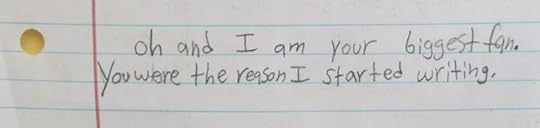 oh and I am your biggest fan.
You were the reason I started writing.